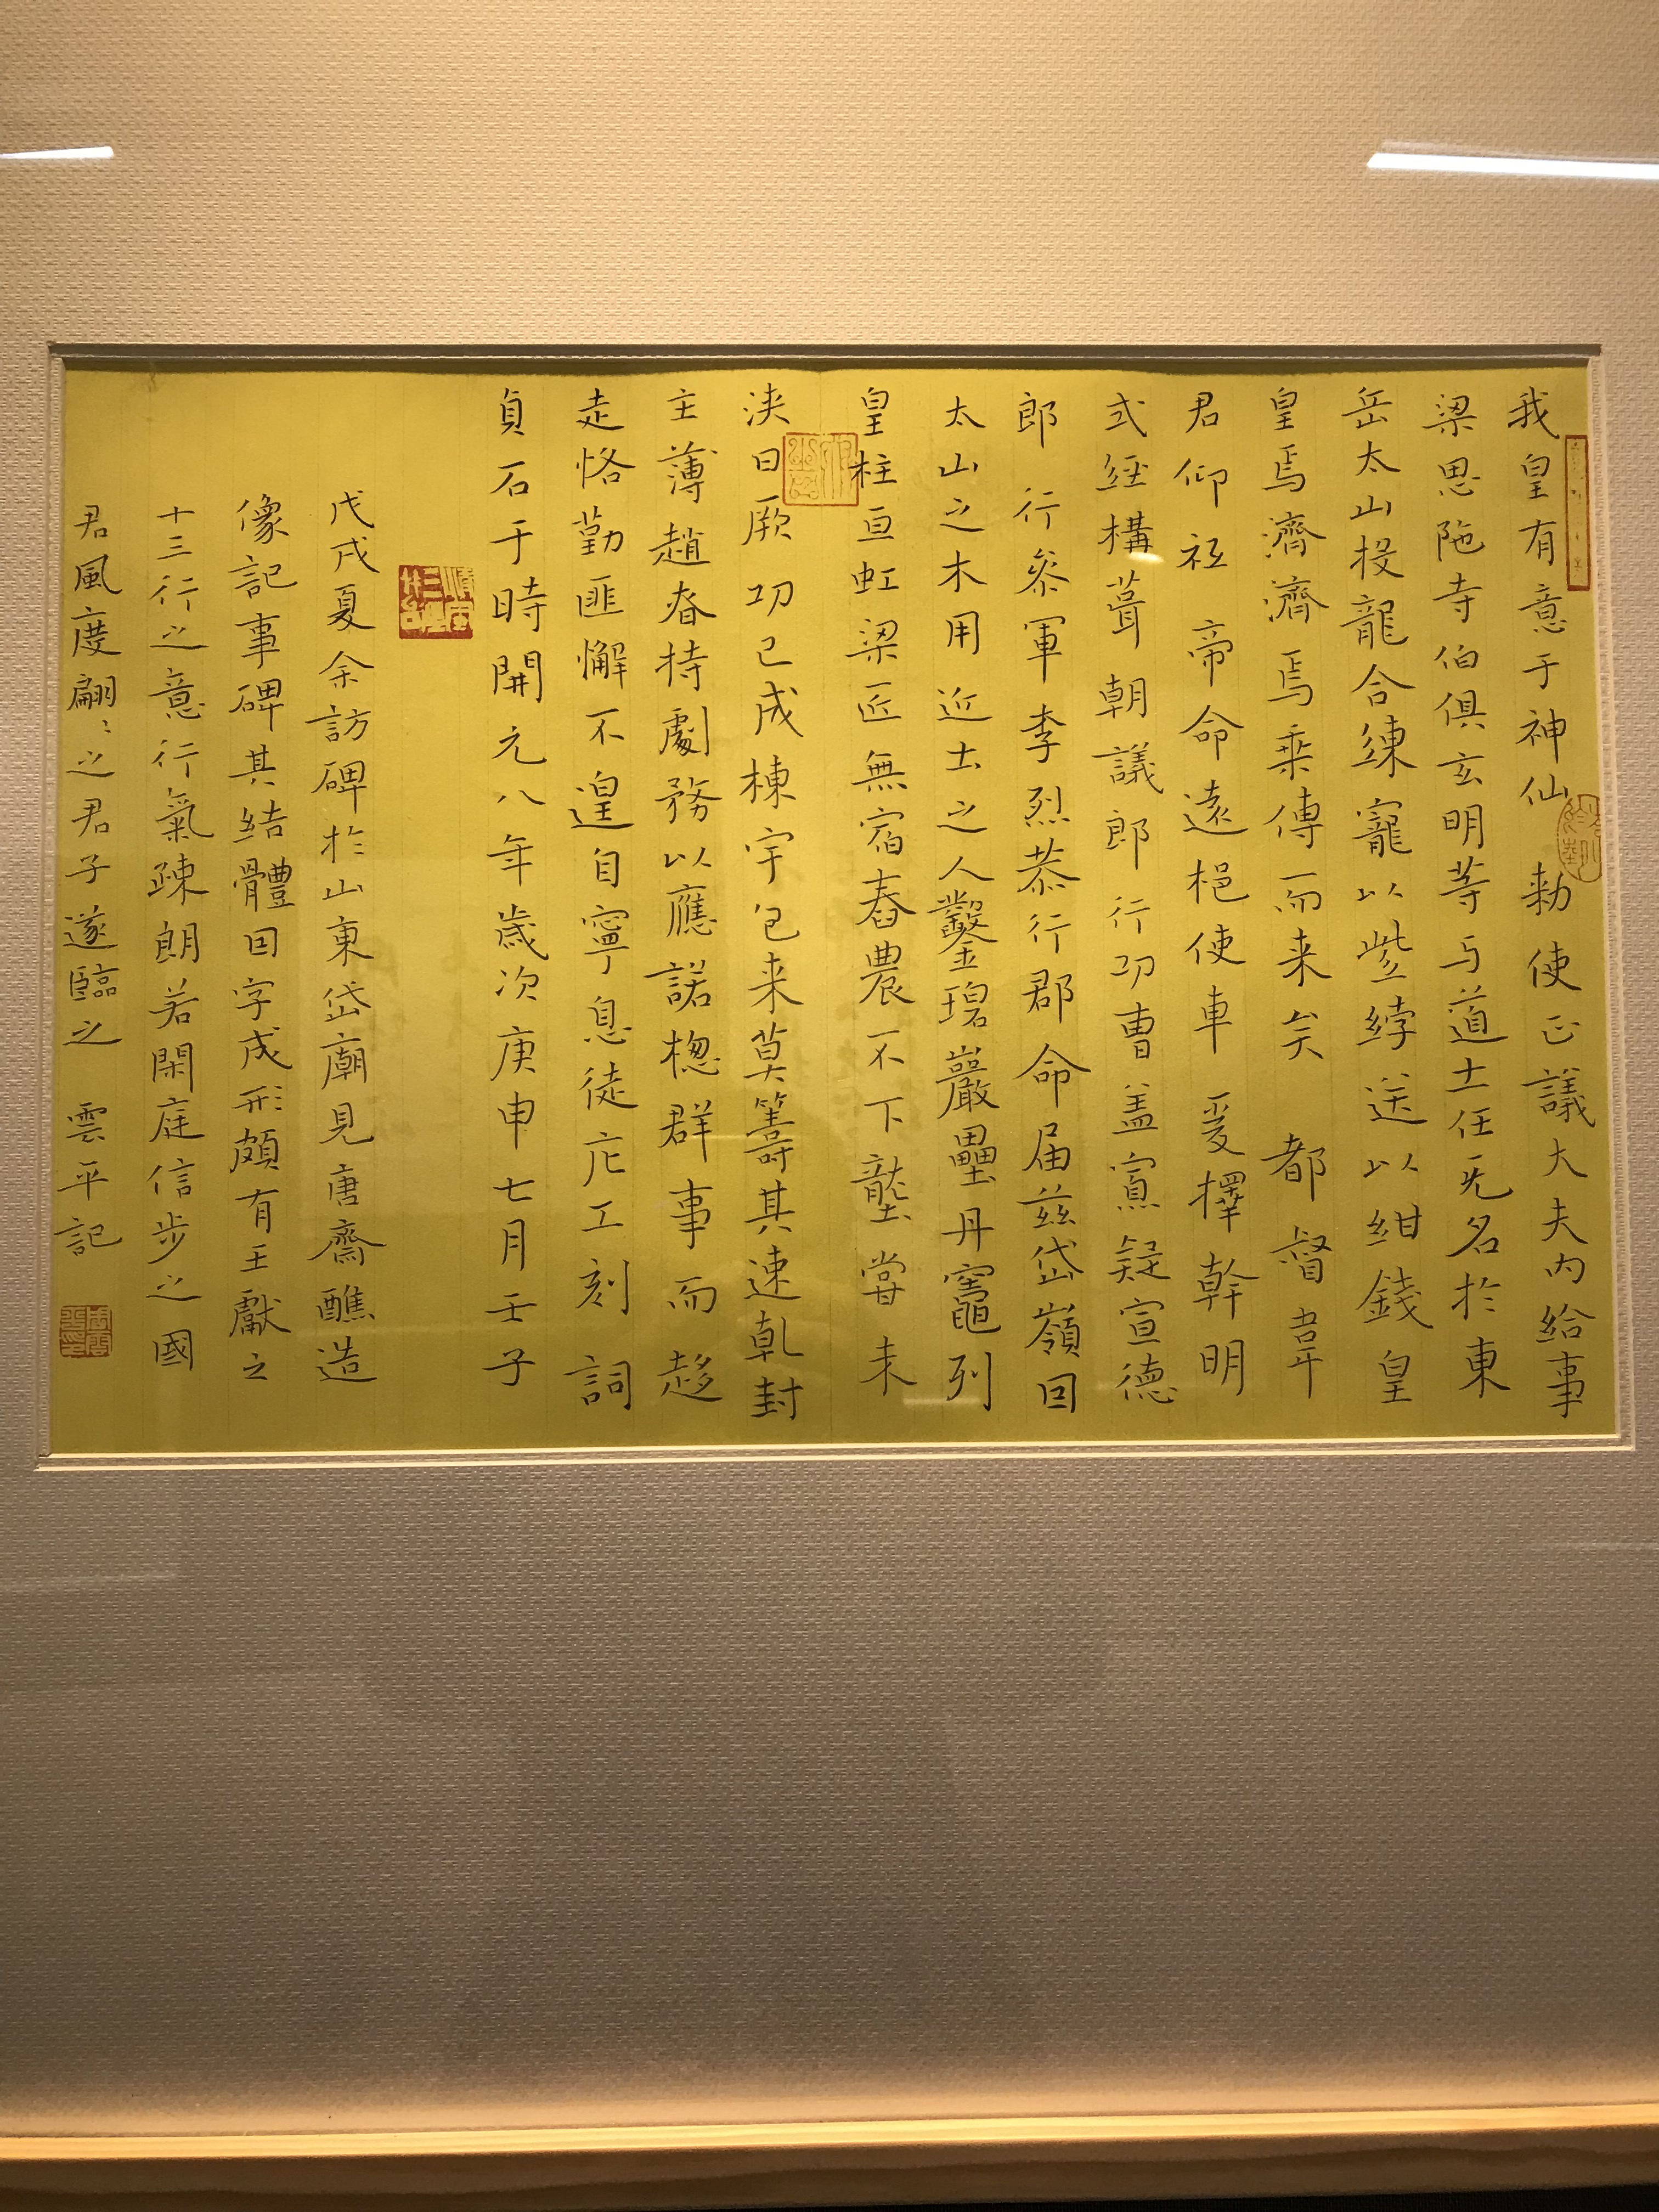 我皇有意于神仙 勅使正議大夫內給事
梁思陁寺伯俱玄明等与道士任无名於東
岳太山投龍合練寵以璽綍送以紺錢皇
皇焉濟濟焉乘傳而来矣 都督韋
君仰祗 帝命遠挹使車 爰擇幹明
式經構葺朝議郎行功曹盖寡疑宣德
郎行參軍李烈恭行郡命届兹岱嶺因
太山之木用近土之人鑿碧巖壘丹竈列
皇柱亘虹梁匠無宿舂農不下壟嘗未
浹日厥功已成棟宇包来莫籌其速乹封
主薄趙春持劇務以應諾楤群事而趍
走恪勤匪懈不遑自寧息徒庀工刻 詞
貞石于時開元八年歲次庚申七月壬子
戊戌夏余訪碑於山東岱廟見唐齋醮造
像記事碑其結體回字成形頗有王獻之
十三行之意行氣疎朗若閑庭信步之國
君風度翩〻之君子遂臨之 雲平記